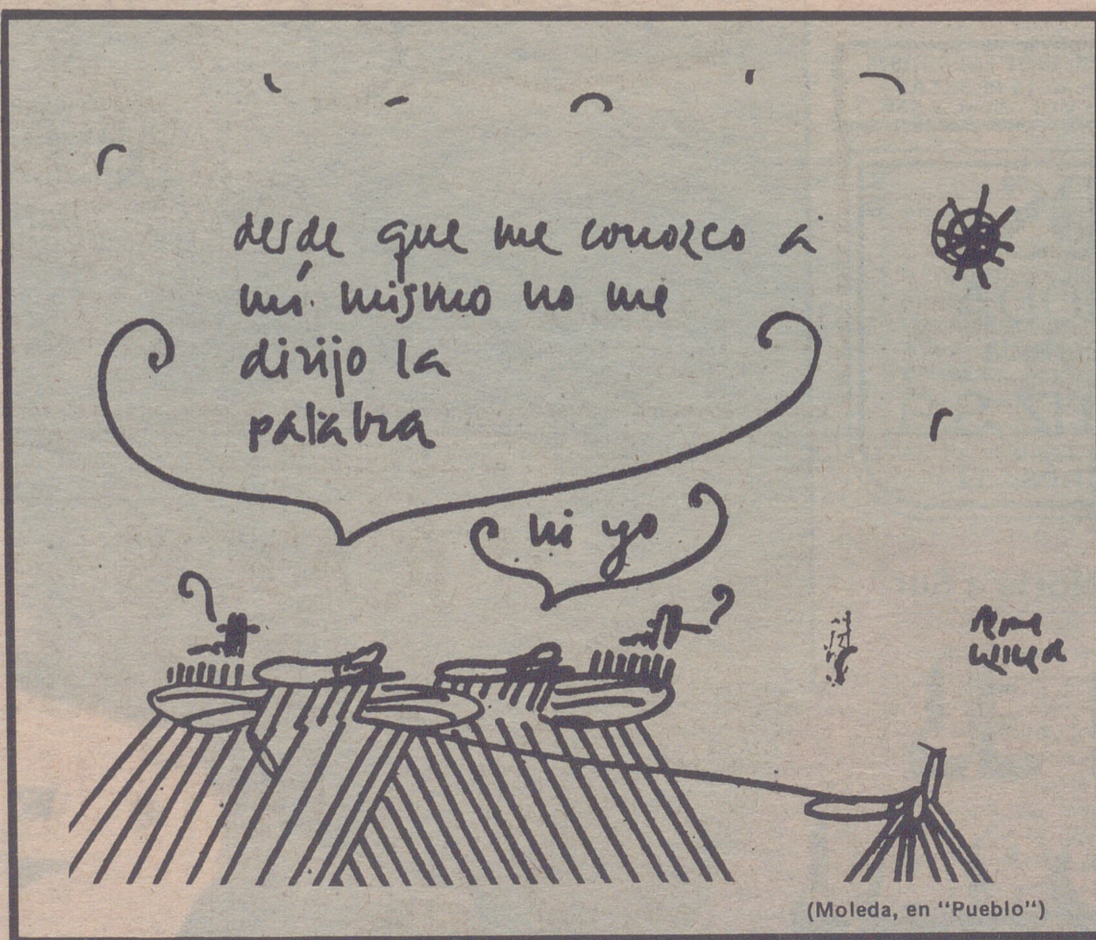 desde que me conozco a
mí mismo no me
dirijo la
palabra
ni yo
(Moleda, en "Pueblo")